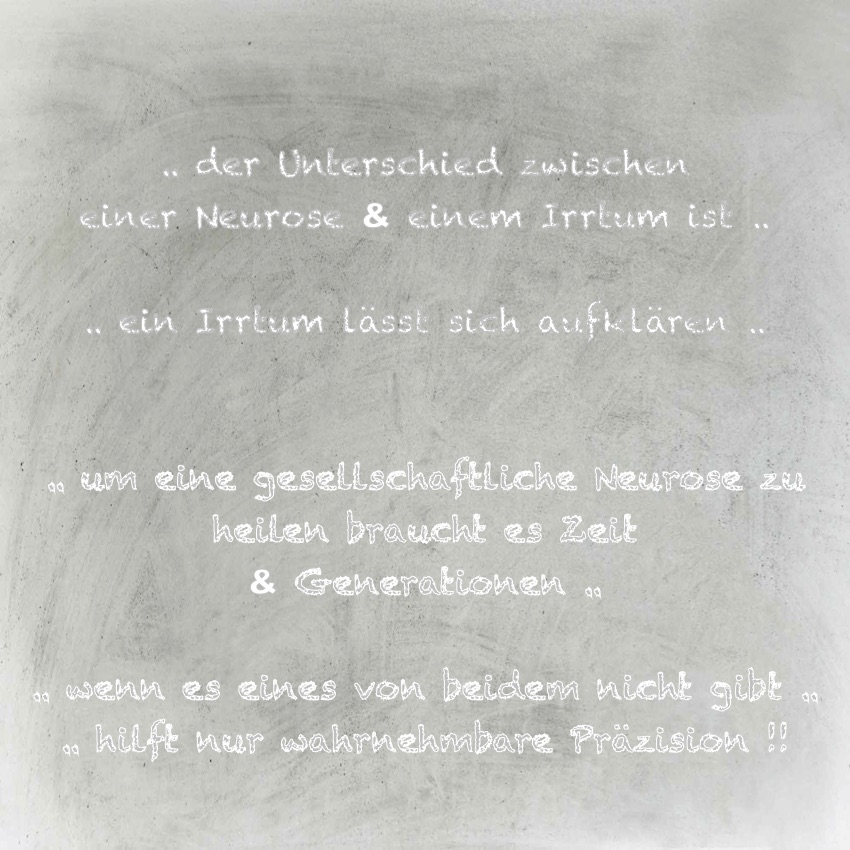 .. der Unterschied zwischen
einer Neurose & einem Irrtum ist ..
.. ein Irrtum lässt sich aufklären ..
.. um eine gesellschaftliche Neurose zu
heilen braucht es Zeit
& Generationen ..
.. wenn es eines von beidem nicht gibt ..
.. hilft nur wahrnehmbare Präzision !!